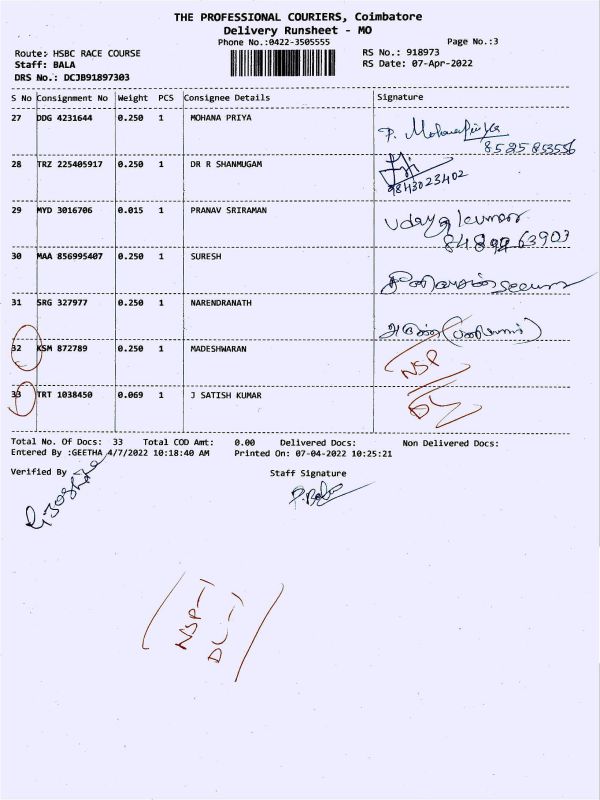 THE PROFESSIONAL COURIERS, Coimbatore
Delivery Runsheet - MO
Phone No.:0422-3505555 Page No.:3
Route: HSBC RACE COURSE RS No.: 918973
Staff: BALA RS Date: 07-Apr-2022
DRS No.: DCJB91897303
S No Consignment No Weight PCS Consignee Details Signature
27 DDG 4231644 0.250 1 MOHANA PRIYA P. Mohanapriya
8525853556
28 TRZ 225405917 0.250 1 DR R SHANMUGAM
9843023402
29 MYD 3016706 0.015 1 PRANAV SRIRAMAN Udayakumar
30 MAA 856995407 0.250 1 SURESH
31 SRG 327977 0.250 1 NARENDRANATH
32 KSM 872789 0.250 1 MADESHWARAN NSP
33 TRT 1038450 0.069 1 J SATISH KUMAR DL
Total No. Of Docs: 33 Total COD Amt: 0.00 Delivered Docs: Non Delivered Docs:
Entered By :GEETHA 4/7/2022 10:18:40 AM Printed On: 07-04-2022 10:25:21
Verified By Staff Signature
P. Bala
NSP-1
DL-1